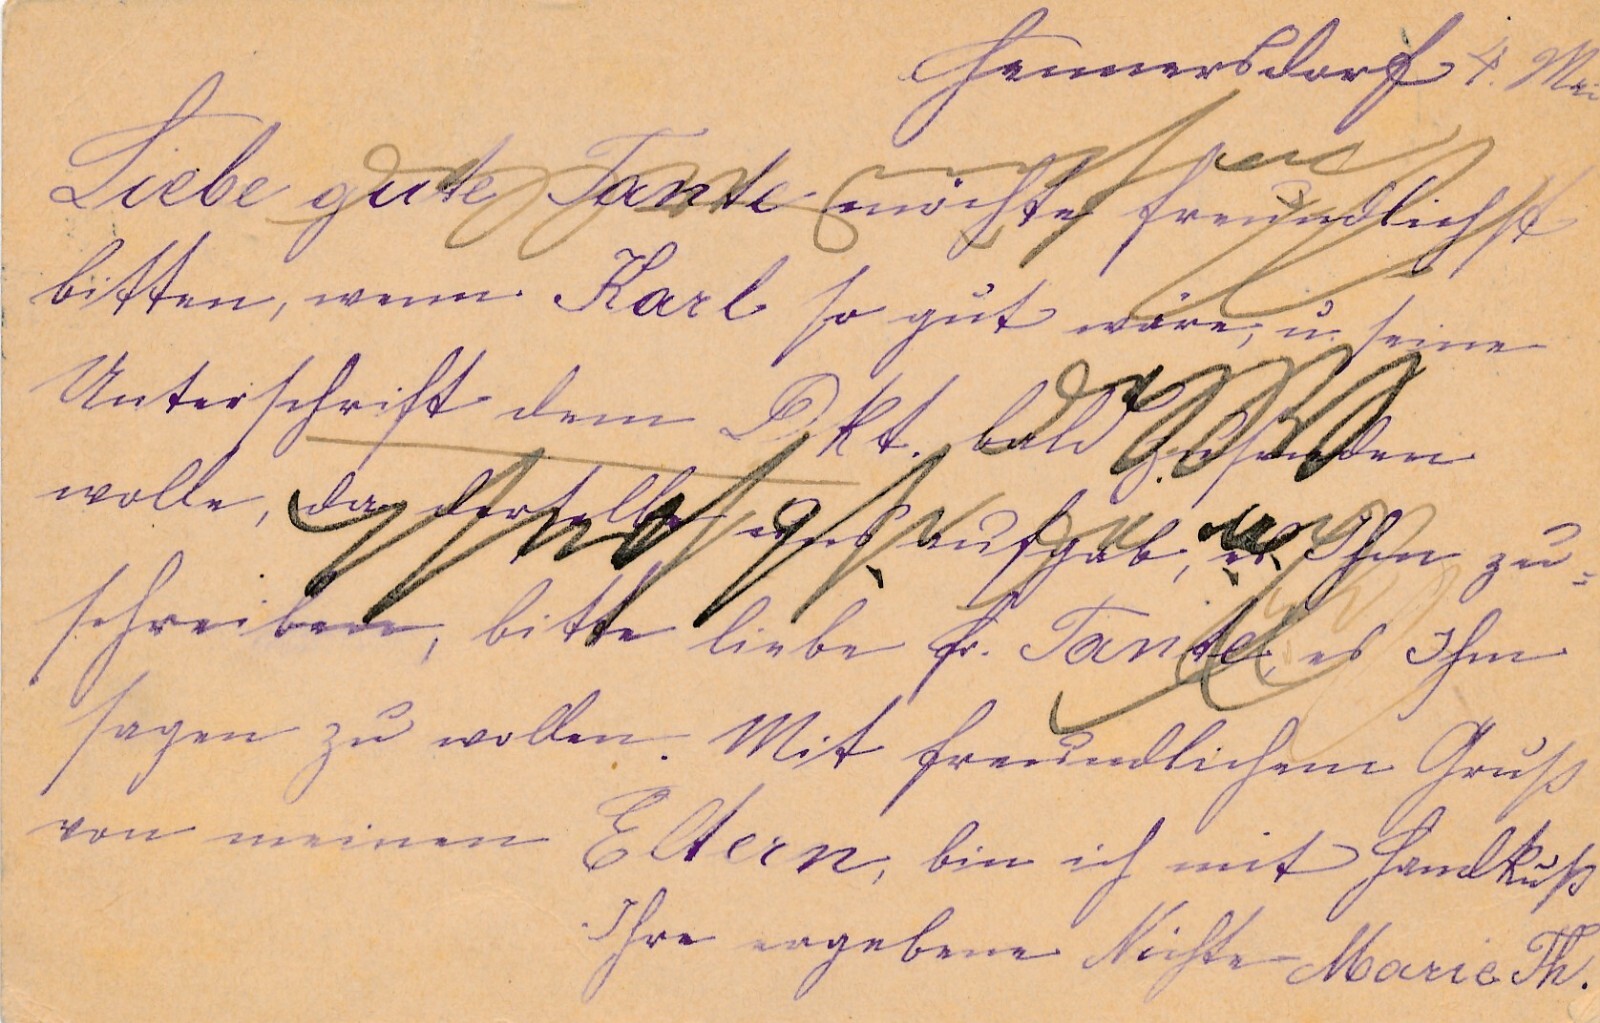 Hennersdorf 4. Mai
Liebe gute Tante möchte freundlichst
bitten, wenn Karl so gut wäre, u. seine
Unterschrift dem Dkt. bald zusenden
wolle, da derselbe uns aufgab, es Ihm zu=
schreiben, bitte liebe fr. Tante, es Ihm
sagen zu wollen. Mit freundlichem Gruß
von meinen Eltern, bin ich mit Handkuß
Ihre ergebene Nichte Marie Th.